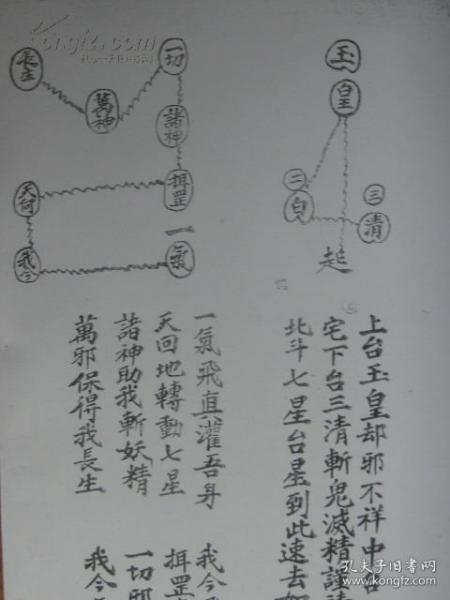 玉
皇
二
白
三
清
起
一切
諸神
揖罡
一氣
萬神
長生
我今
上台玉皇却邪不祥中台
宅下台三清斬鬼滅精謹
北斗七星台星到此速去如
一氣飛直灌吾身 我今
天回地轉動七星 揖罡
諸神助我斬妖精 一切邪
萬邪保得我長生 我今
孔夫子旧书网